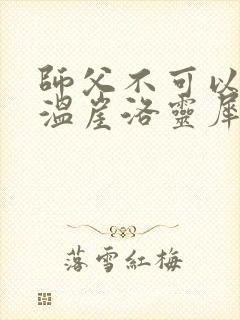 師父不可以
溫崖洛靈犀
落雪紅梅